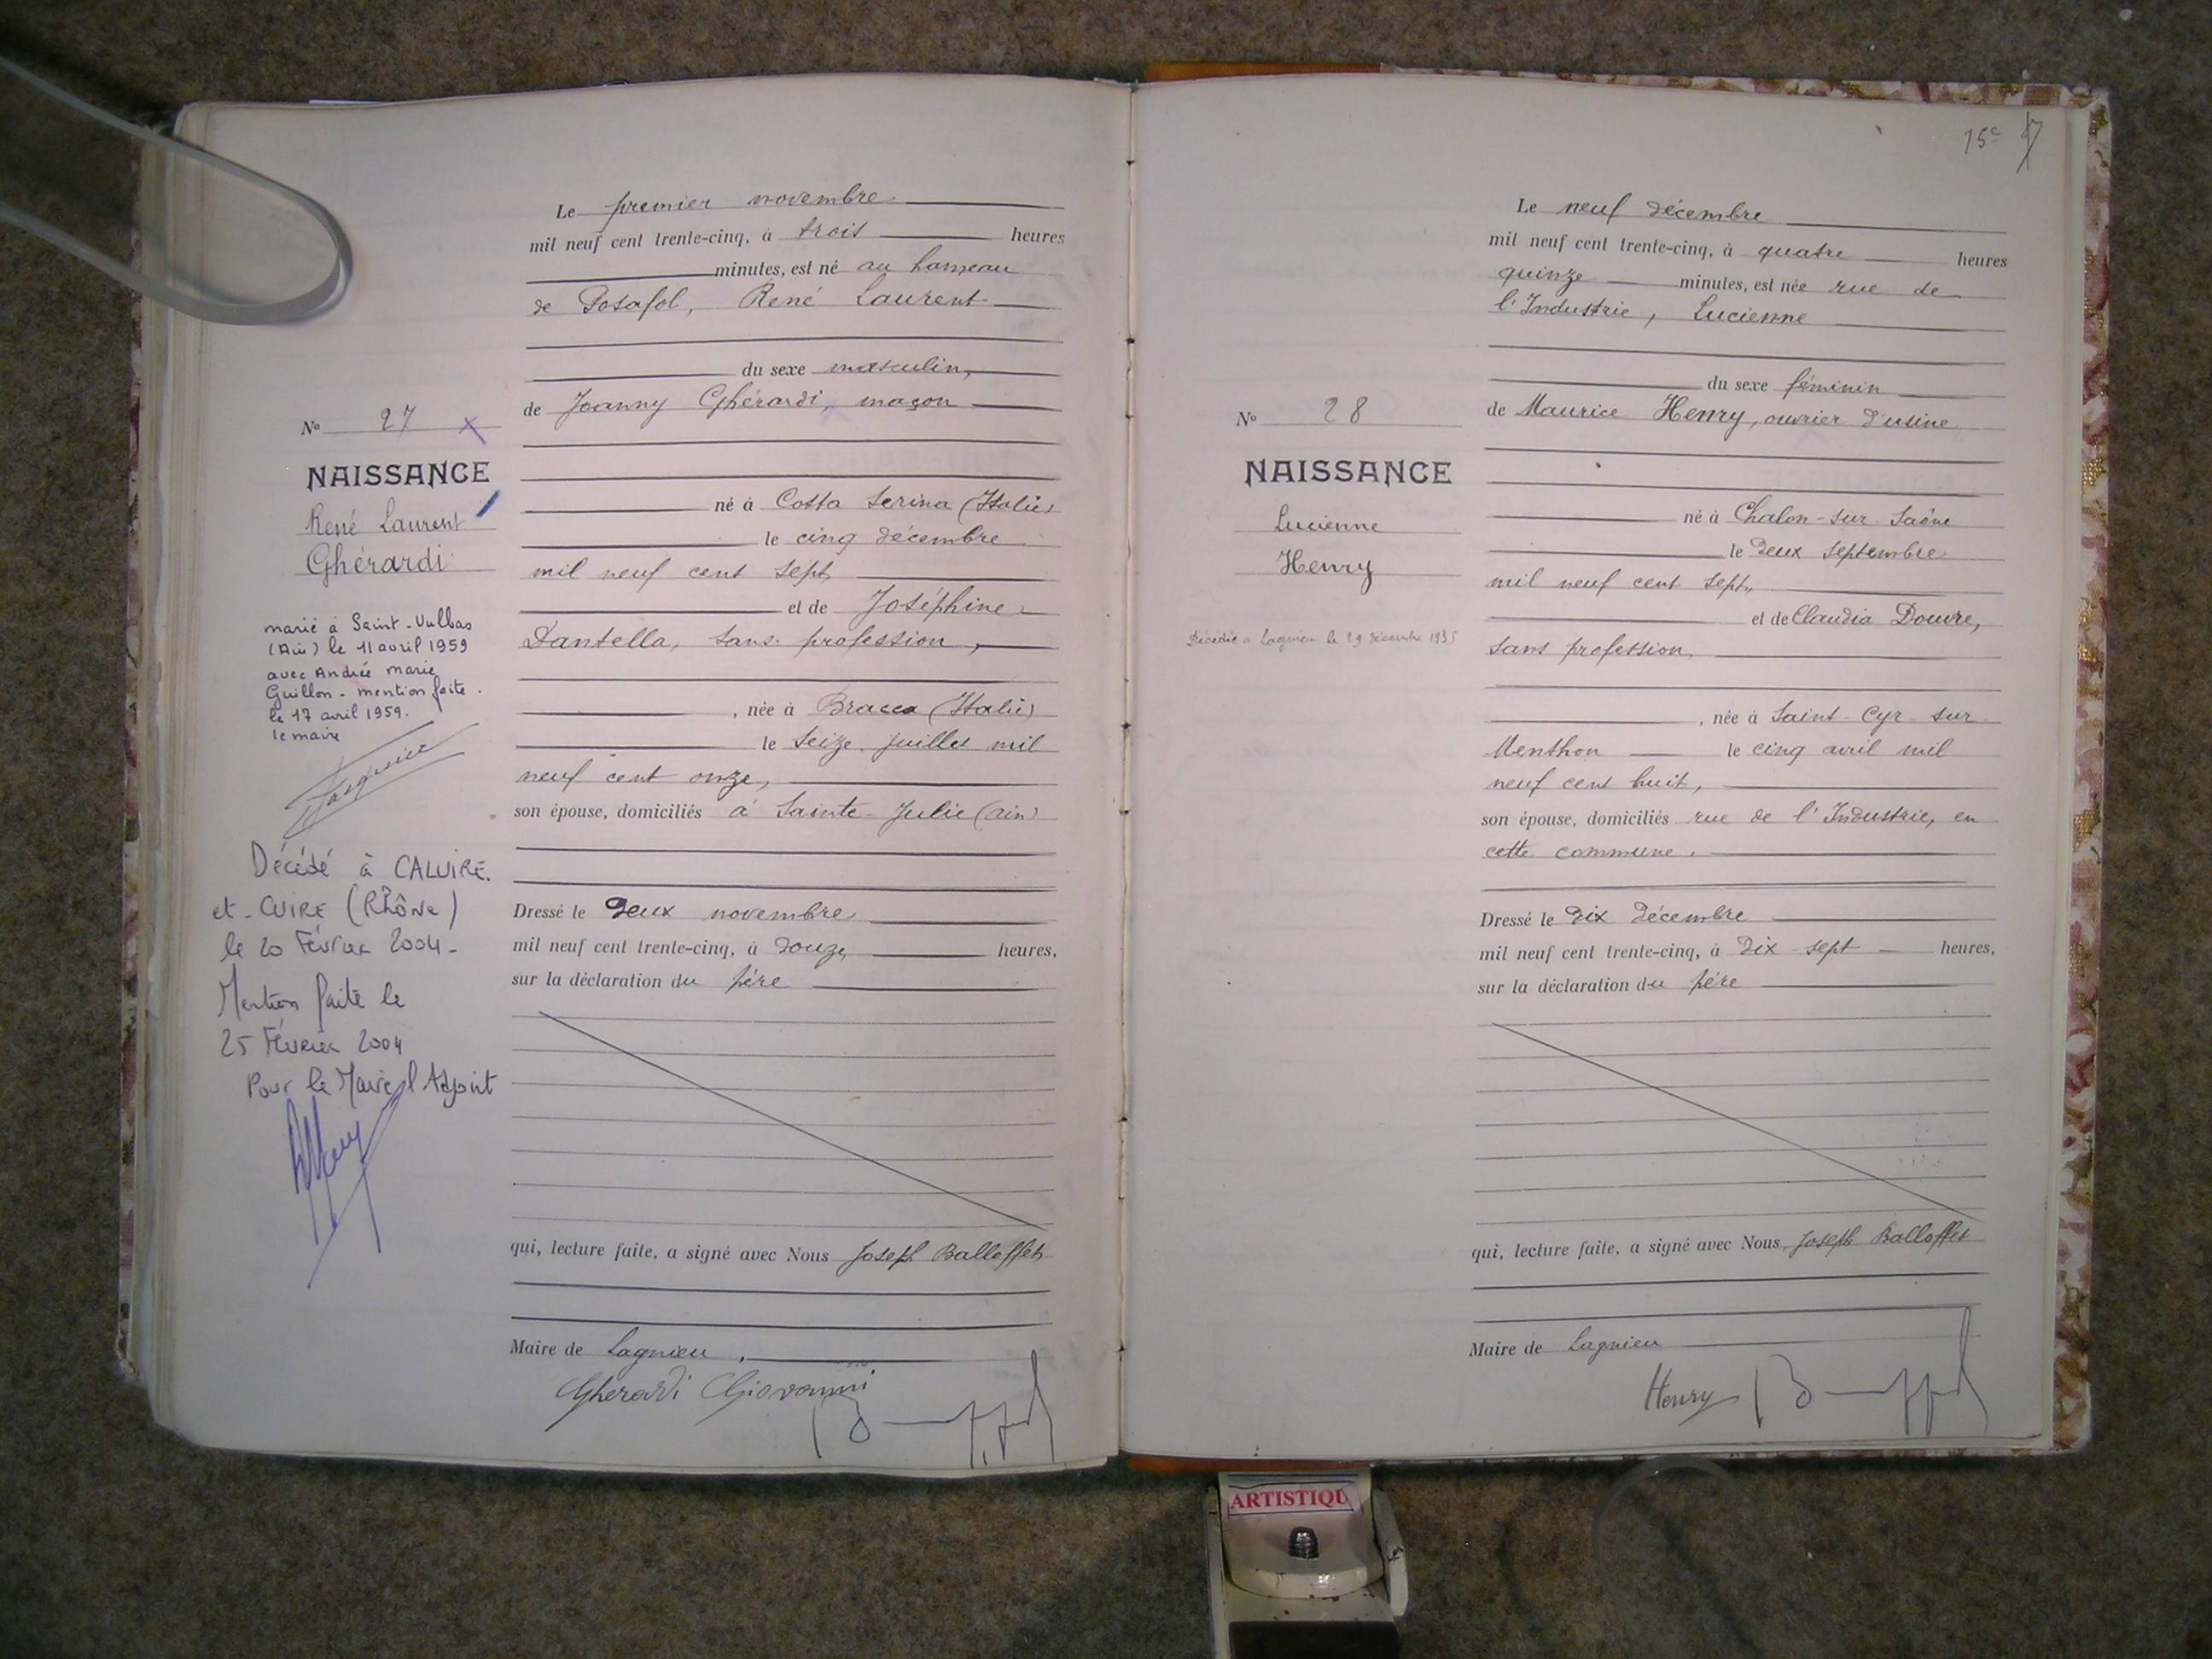 Le premier novembre
mil neuf cent trente-cinq, à trois heures
minutes, est né au hameau
de Posafol, René Laurent
du sexe masculin,
de Joanny Ghérardi, maçon
né à Costa Serina (Italie)
le cinq décembre
mil neuf cent sept
et de Joséphine
Dantella, sans profession,
, née à Bracca (Italie)
le seize juillet mil
neuf cent onze,
son épouse, domiciliés à Sainte-Julie (ain)
Dressé le deux novembre
mil neuf cent trente-cinq, à douze heures,
sur la déclaration du père
qui, lecture faite, a signé avec Nous Joseph Balloffet
Maire de Lagnieu,
Gherardi Giovanni
No 27 X
NAISSANCE
René Laurent
Ghérardi
marié à Saint-Vulbas
(Ain) le 11 avril 1959
avec Andrée marie
Guillon - mention faite.
le 17 avril 1959.
le maire
Décédé à CALUIRE.
et-CUIRE (RHône)
le 20 Février 2004-
Mention faite le
25 Février 2004
Pour le Maire l'Adjoint
15e
Le neuf décembre
mil neuf cent trente-cinq, à quatre heures
quinze minutes, est née rue de
l'Industrie, Lucienne
du sexe féminin
de Maurice Henry, ouvrier d'usine
né à Chalon-sur Saône
le deux septembre
mil neuf cent sept,
et de Claudia Douvre,
sans profession,
, née à Saint-Cyr sur
Menthon le cinq avril mil
neuf cent huit,
son épouse, domiciliés rue de l'Industrie, en
cette commune.
Dressé le dix décembre
mil neuf cent trente-cinq, à dix-sept heures,
sur la déclaration du père
qui, lecture faite, a signé avec Nous, Joseph Balloffet
Maire de Lagnieu
Henry
No 28
NAISSANCE
Lucienne
Henry
Décédée a Lagnieu le 29 décembre 1935
ARTISTIQU